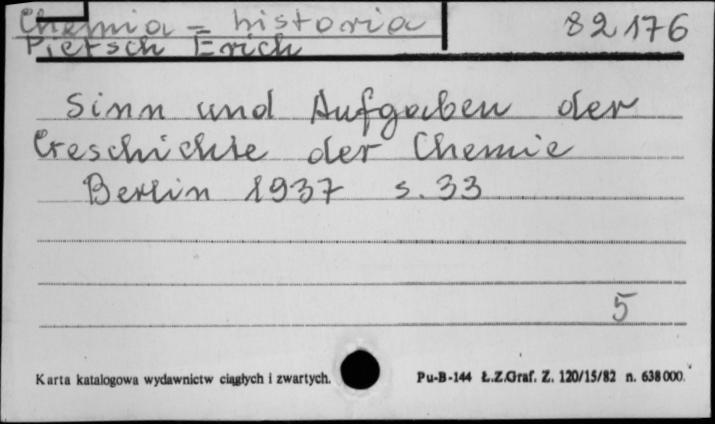 Chemia - historia 82176
Pietsch Erich
Sinn und Aufgaben der
Geschichte der Chemie
Berlin 1937 s. 33
5
Karta katalogowa wydawnictw ciągłych i zwartych. Pu-B-144 Ł.Z.Graf. Z. 120/15/82 n. 638000.